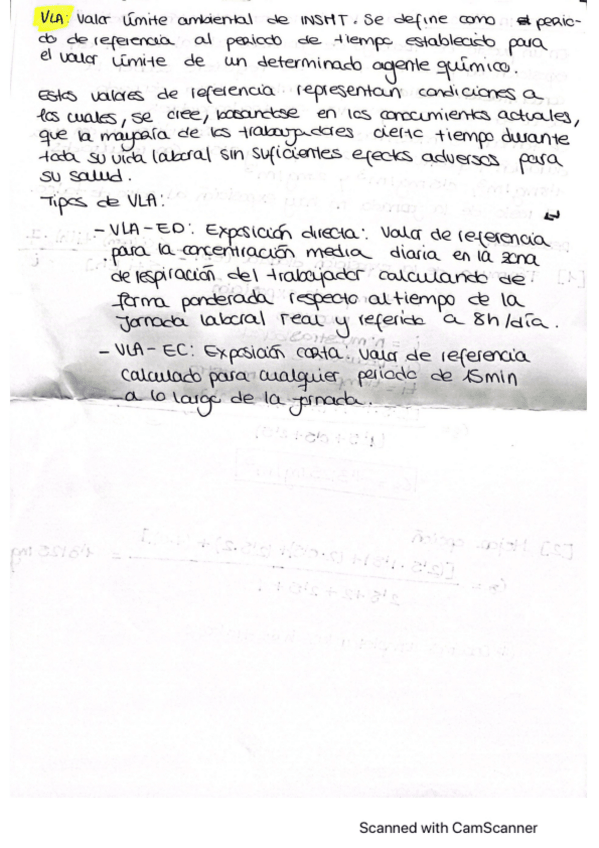 VLA: Valor límite ambiental de INSHT. Se define como perio-
do de referencia al periodo de tiempo establecido para
el valor límite de un determinado agente químico.
Estos valores de referencia representan condiciones a
las cuales, se cree, basandose en los conocimientos actuales,
que la mayoría de los trabajadores cierto tiempo durante
toda su vida laboral sin suficientes efectos adversos para
su salud.
Tipos de VLA:
- VLA-ED: Exposición directa: Valor de referencia
para la concentración media diaria en la zona
de respiración del trabajador calculando de
forma ponderada respecto al tiempo de la
Jornada laboral real y referido a 8h/día.
- VLA-EC: Exposición corta: Valor de referencia
calculado para cualquier periodo de 15min
a lo largo de la jornada.
Scanned with CamScanner